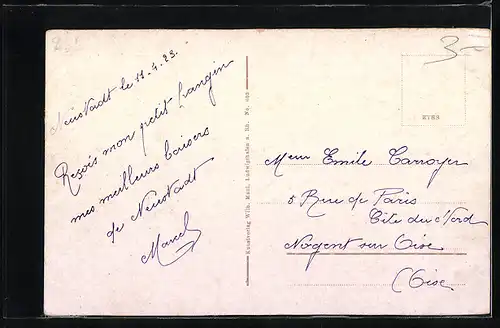 Neustadt le 11.4.23.
Reçois mon petit
mes meilleurs baisers
de Neustadt
Marcel
Kunstverlag Wilh. Manl, Ludwigshafen a. Rh. No.
3-
2783
Mr Emile Carroyer
5 Rue de Paris
Cité du Nord
Nogent sur Oise
(Oise